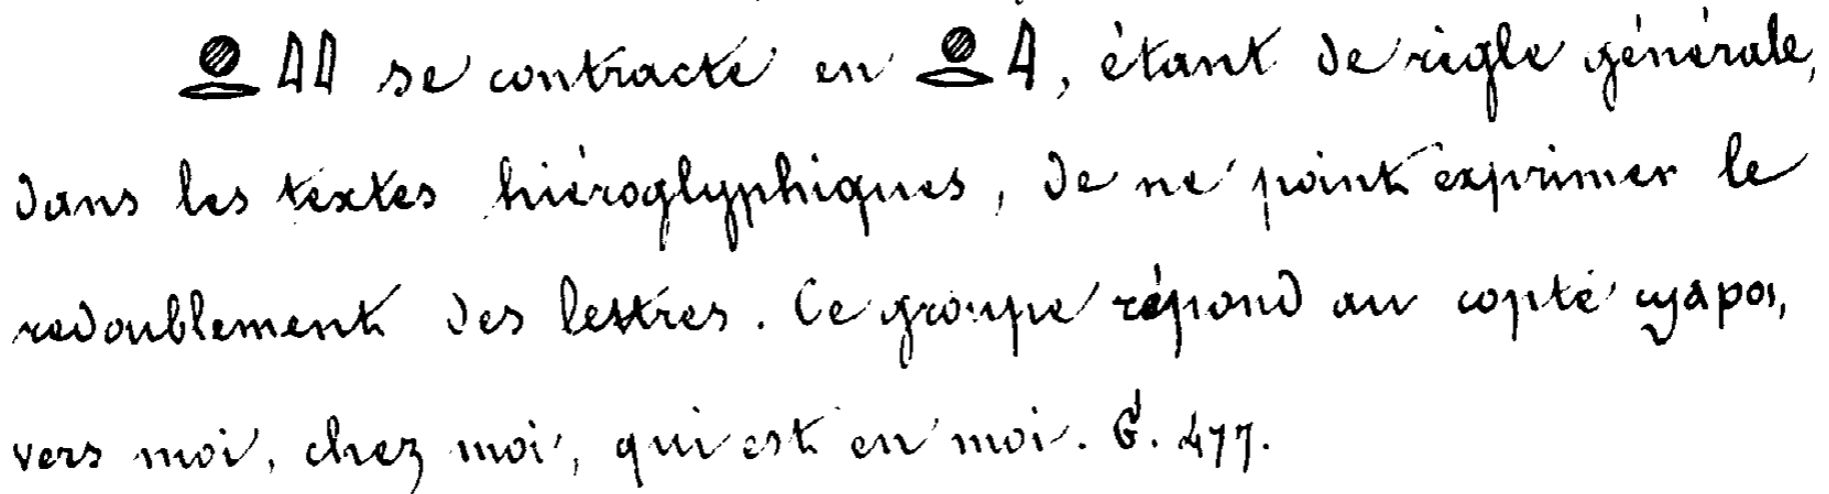 𓐍𓂋𓇋𓇋 se contracte en 𓐍𓂋𓇋, étant de règle générale,
dans les textes hiéroglyphiques, de ne point exprimer le
redoublement des lettres. Ce groupe répond au copte ϣαροι,
vers moi, chez moi, qui est en moi. G. 477.